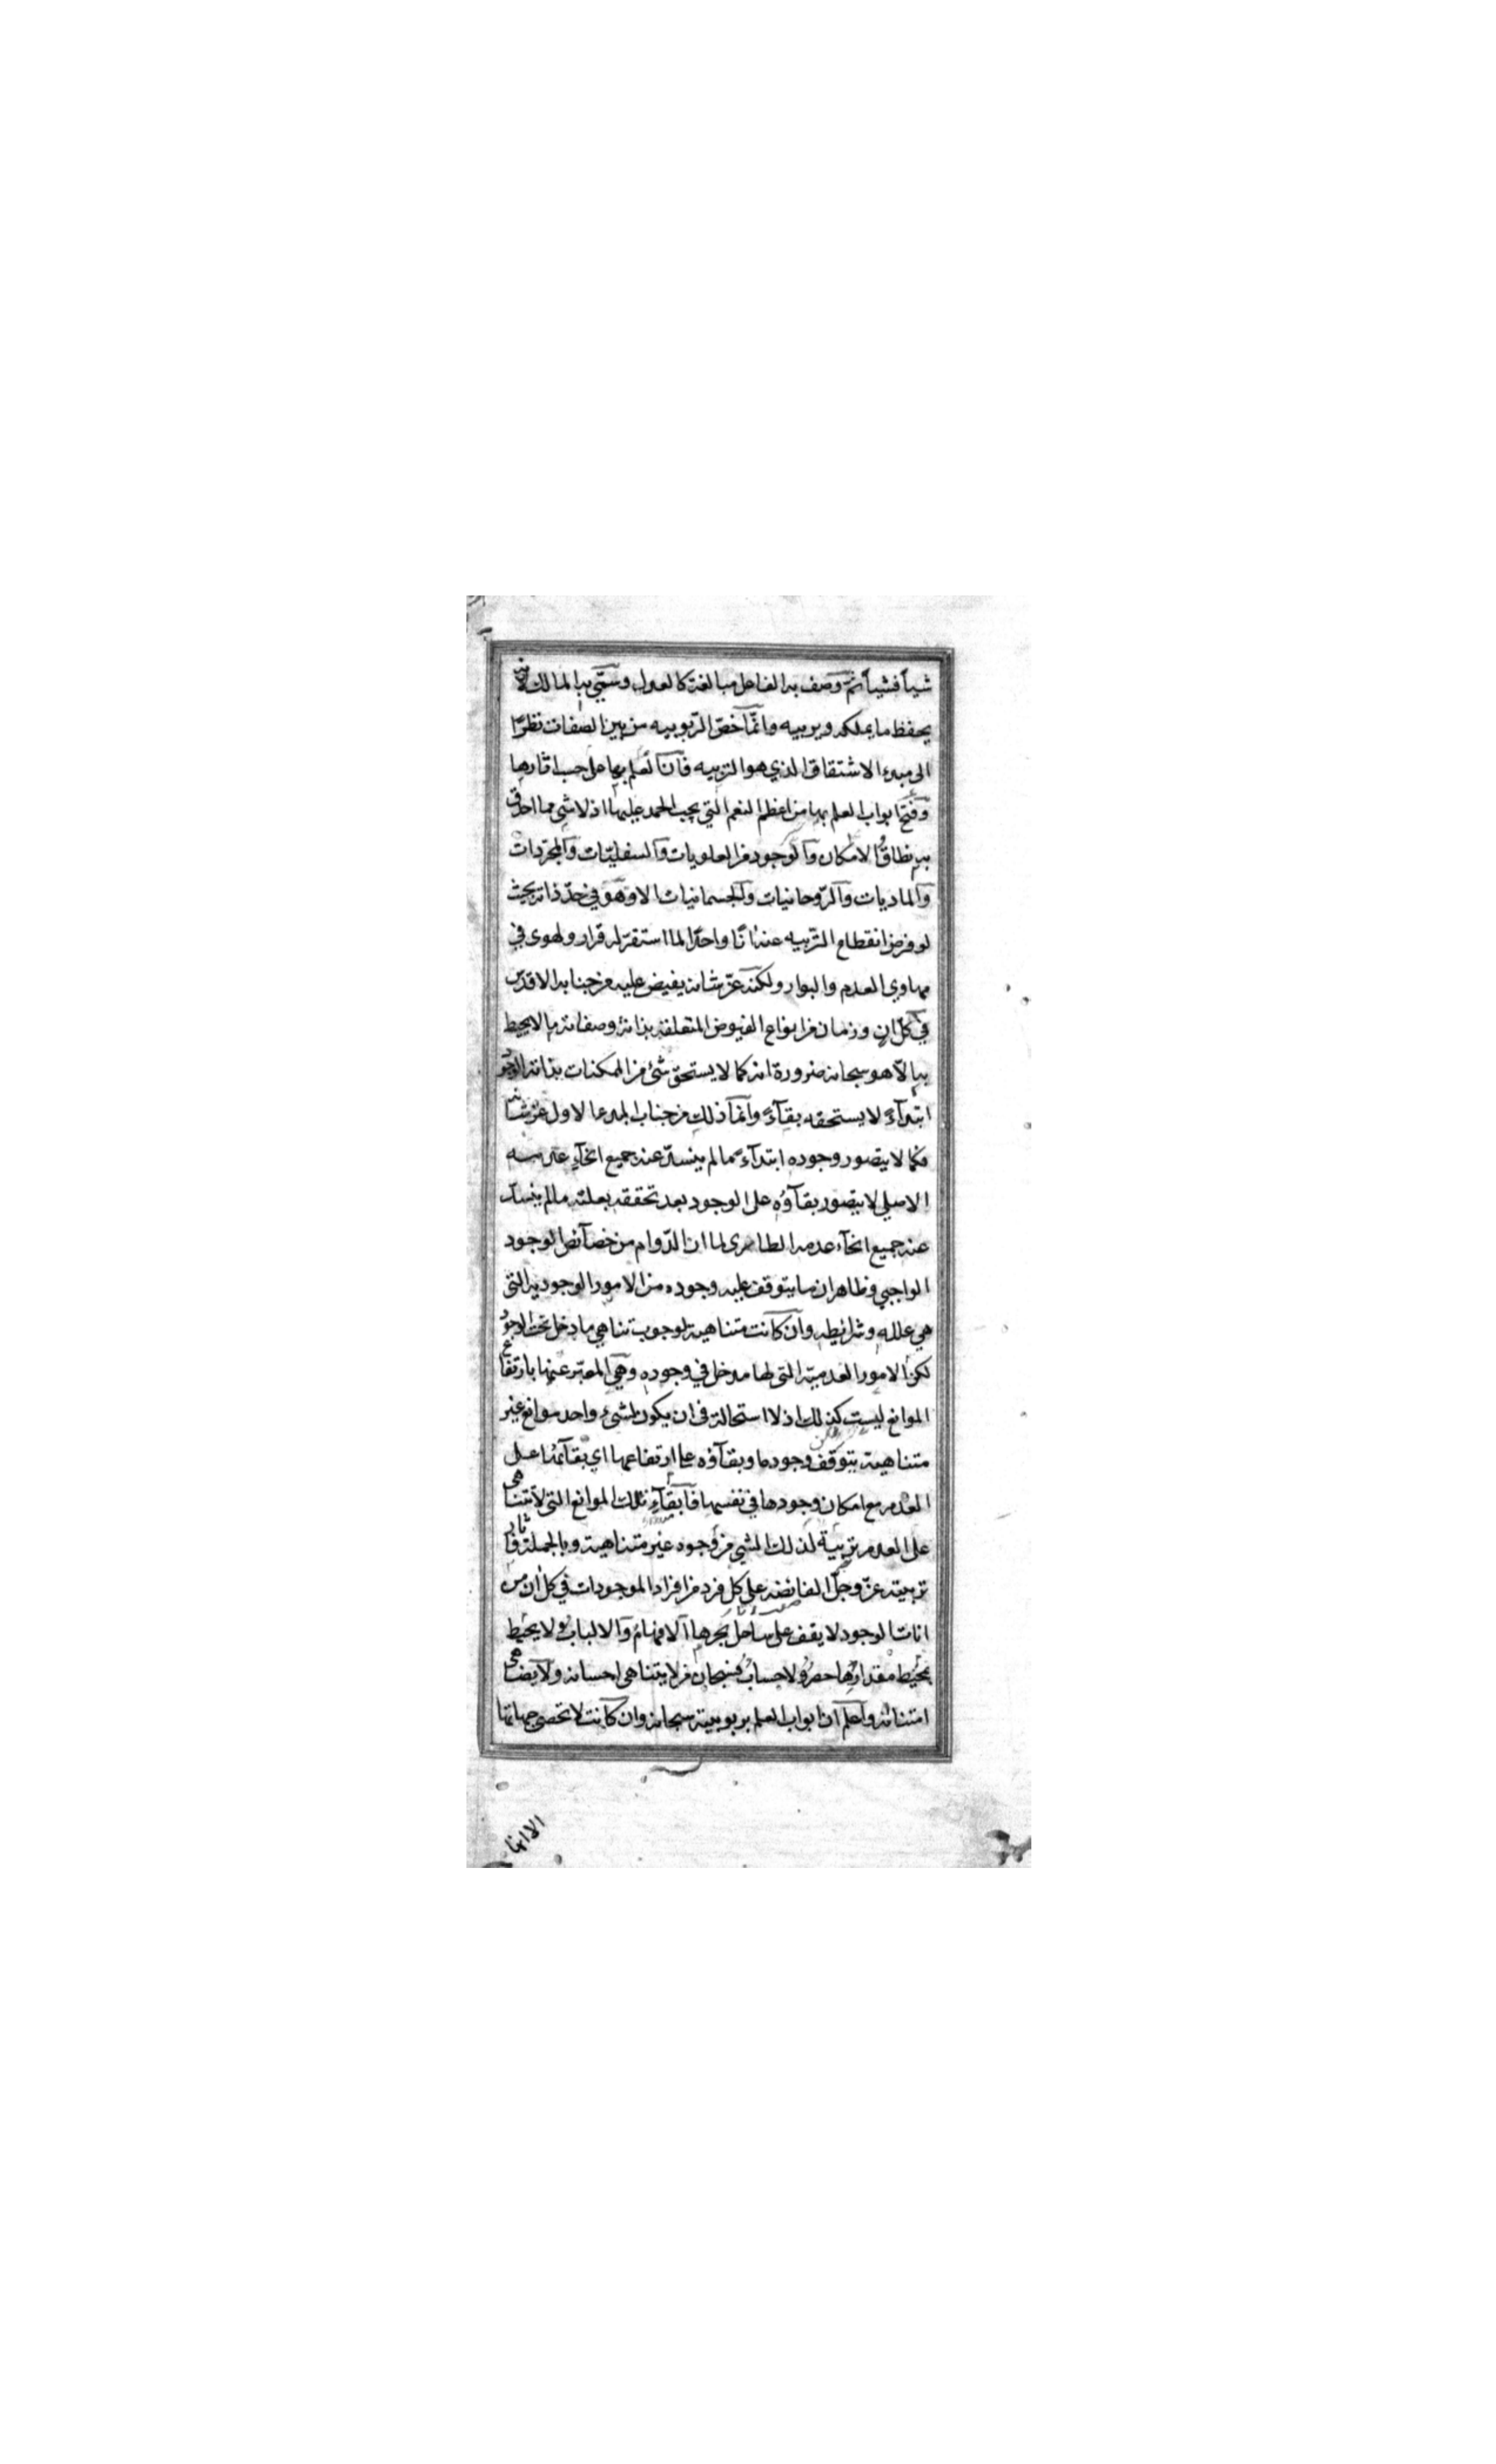 شيأ فشيأ ثم وصف به الفاعل مبالغة كالعدل وسمّي به المالك لانه
يحفظ ما يملكه ويربيه وانّما خصّ الرّبوبيه من بين الصفات نظرًا
الى مبدء الاشتقاق الذي هو التربيه فان العلم بها على حسب اثارها
وفتح ابواب العلم بها من اعظم النعم التي يجب الحمد عليها اذ لا شئ مما احدق
به نطاق الامكان والوجود من العلويات والسفليّات والمجرّدات
والماديات والرّوحانيات والجسمانيات الا وهو في حدّ ذاته بحيث
لو فرض انقطاع التربيه عنه انًا واحدًا لما استقرّ له قرار ولهوى في
مهاوي العدم والبوار ولكنه عزّ شانه يفيض عليه من جنابه الاقدس
في كلّ ان وزمان من انواع الفيوض المتعلقة بذاته وصفاته ما لا يحيط
به الّا هو سبحانه ضرورة انه كما لا يستحق شئ من الممكنات بذاته الوجود
ابتدآءً لا يستحقه بقآءً وانّما ذلك من جناب المبدء الاول عزّ شانه
فكما لا يتصور وجوده ابتدآءً ما لم ينسدّ عنه جميع انحآء عدمه
الاصلي لا يتصور بقآؤه على الوجود بعد تحققه بعلته ما لم ينسدّ
عنه جميع انحآء عدمه الطاري لما ان الدّوام من خصآئص الوجود
الواجبي وظاهر ان ما يتوقف عليه وجوده من الامور الوجوديه التي
هي علله وشرائطه وان كانت متناهية لوجوب تناهي ما دخل تحت الوجود
لكن الامور العدميّة التي لها مدخل في وجوده وهي المعبّر عنها بارتفاع
الموانع ليست كذلك اذ لا استحالة في ان يكون لشئ واحد موانع غير
متناهية يتوقف وجوده وبقآؤه على ارتفاعها اي بقآئها على
العدم مع امكان وجودها في نفسها فابقآء تلك الموانع التي لا تتناهى
على العدم تربية لذلك الشئ من وجوه غير متناهية وبالجملة فاثار
تربيته عزّ وجلّ الفائضه على كل فرد من افراد الموجودات في كل ان من
انات الوجود لا يقف على ساحل بحرها الافهام والالباب ولا يحيط
بمحيط مقدارها حصر ولا حساب فسبحان من لا يتناهى احسانه ولا يضاهى
امتنانه واعلم ان ابواب العلم بربوبيته سبحانه وان كانت لا تحصى جهاتها
الا انها